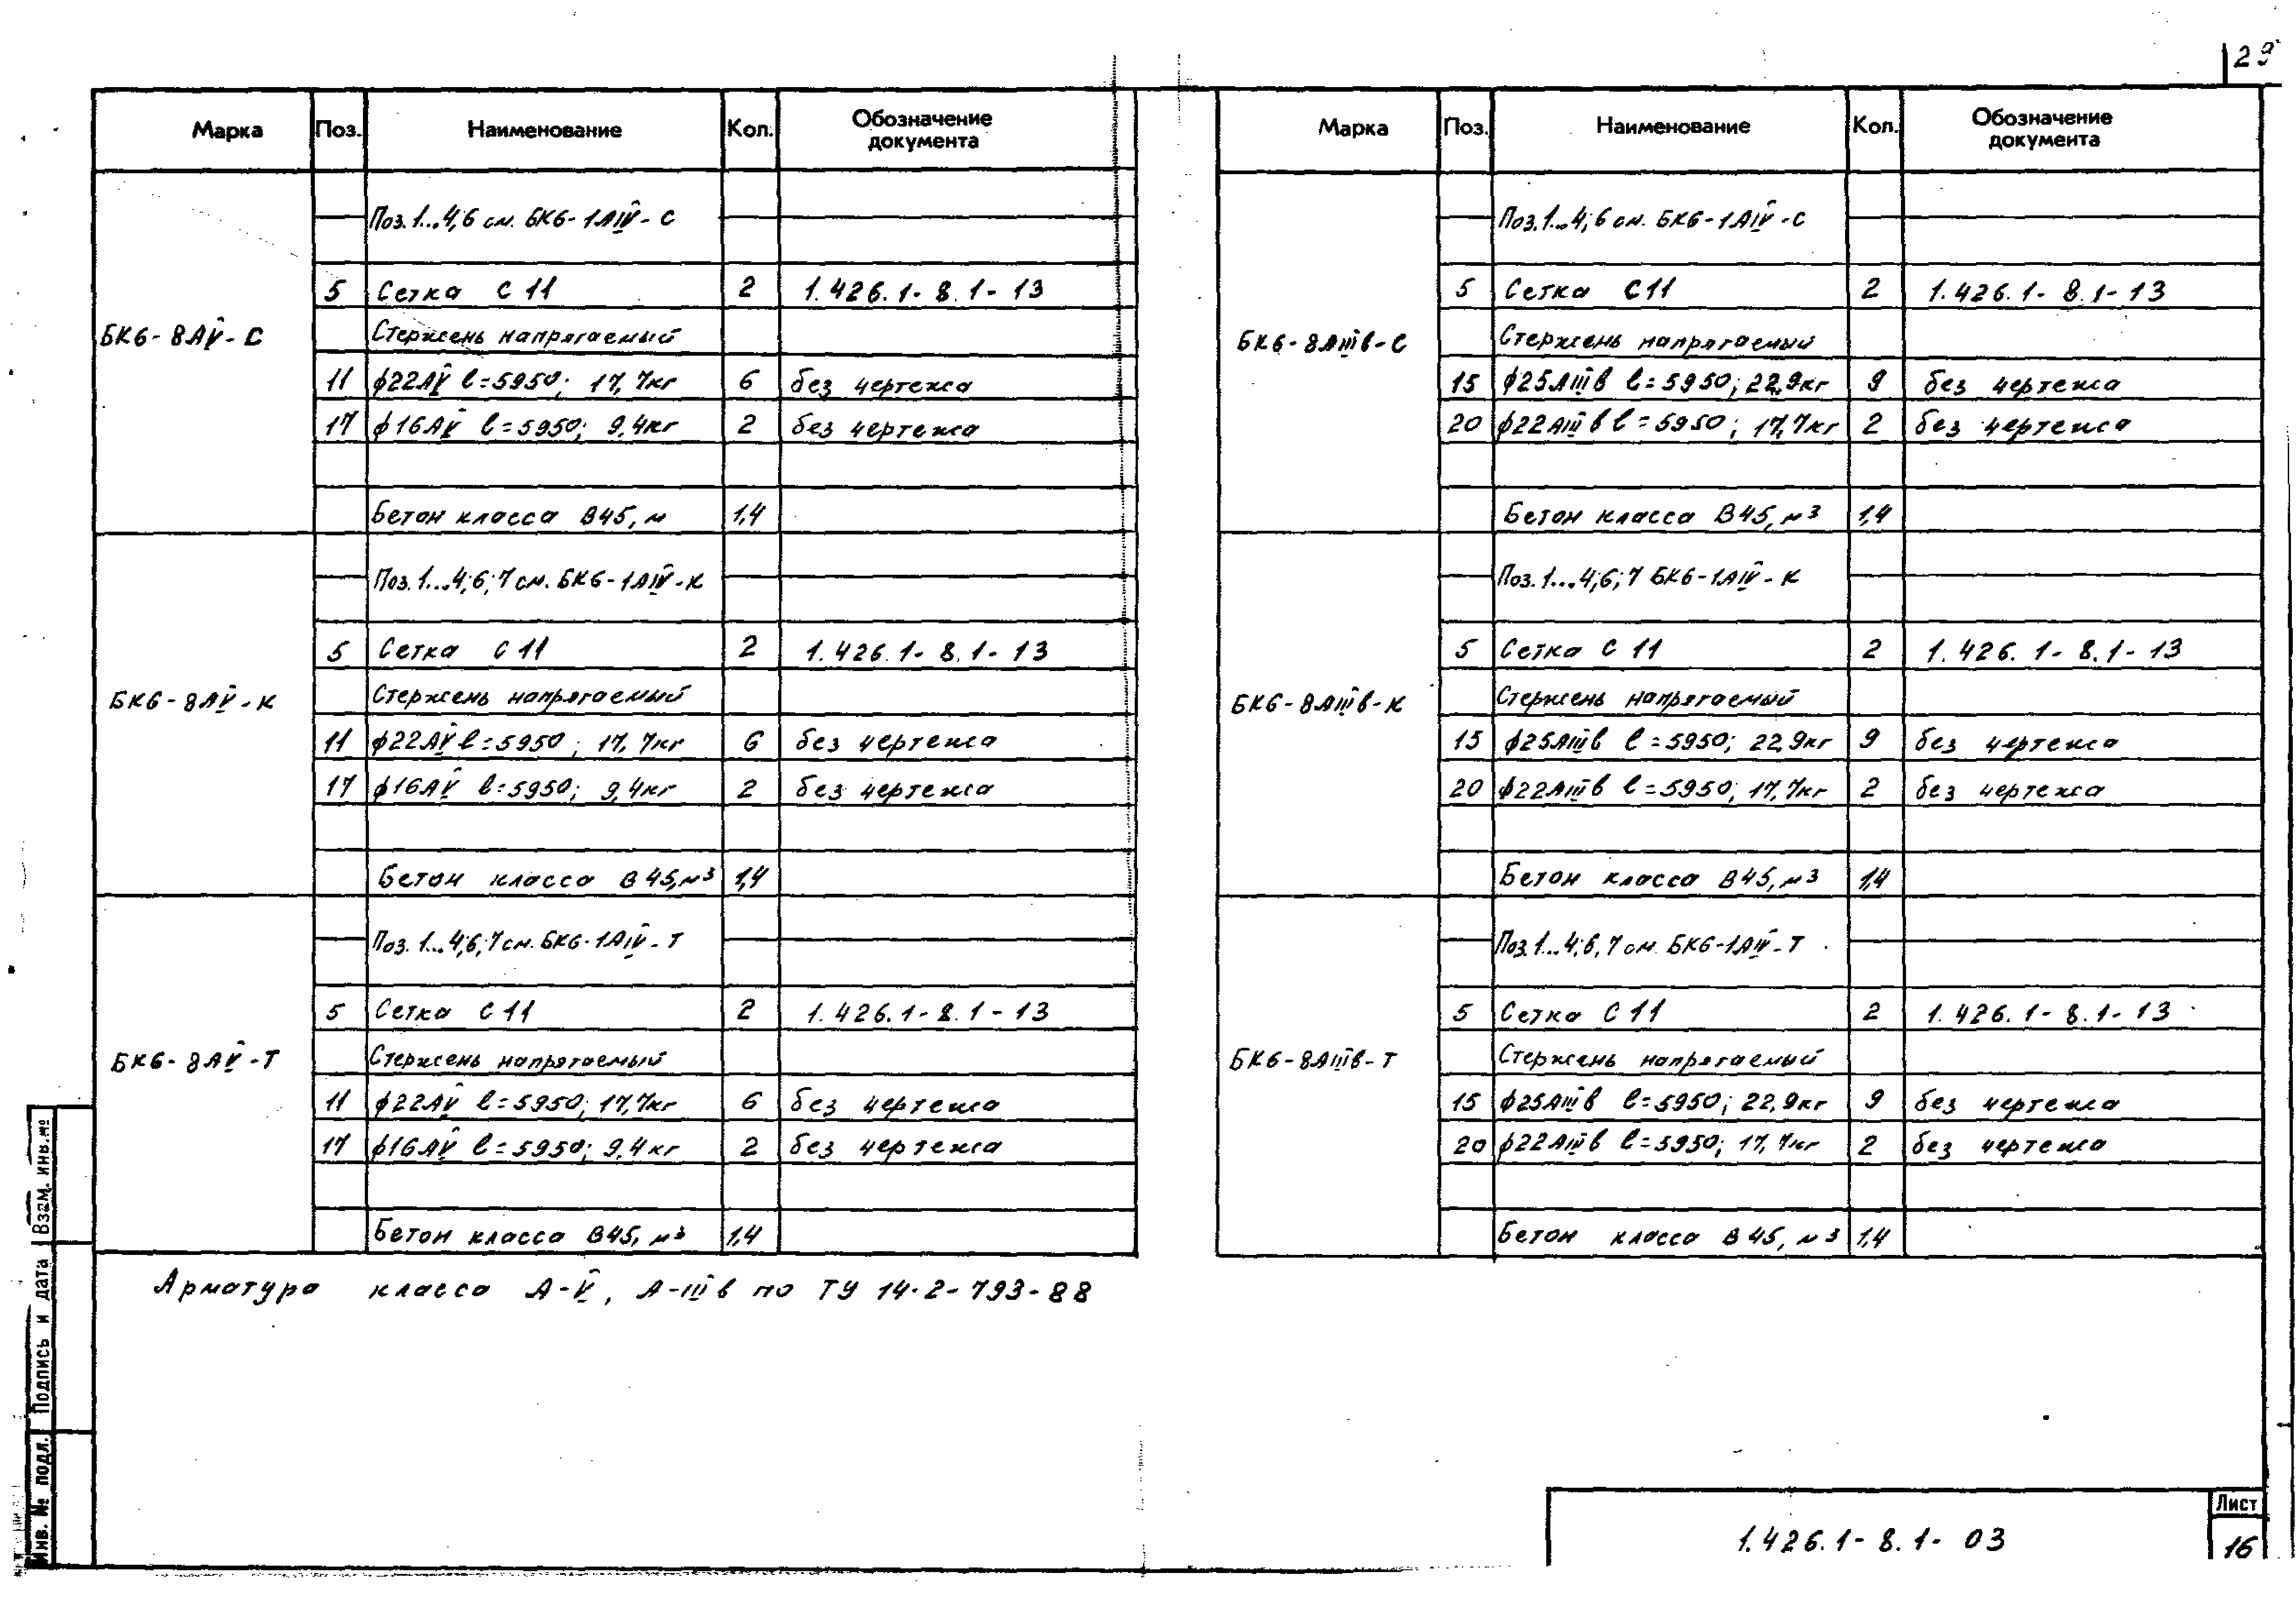 29
Марка Поз. Наименование Кол. Обозначение документа
БК6-8АV-С
Поз.1...4;6 см. БК6-1АIV-С
5 Сетка С11 2 1.426.1-8.1-13
Стержень напрягаемый
11 ф22АV l=5950; 17,7кг 6 без чертежа
17 ф16АV l=5950; 9,4кг 2 без чертежа
Бетон класса В45, м 1,4
БК6-8АV-К
Поз.1...4;6;7 см. БК6-1АIV-К
5 Сетка С11 2 1.426.1-8.1-13
Стержень напрягаемый
11 ф22АV l=5950; 17,7кг 6 без чертежа
17 ф16АV l=5950; 9,4кг 2 без чертежа
Бетон класса В45, м³ 1,4
БК6-8АV-Т
Поз.1...4;6;7 см. БК6-1АIV-Т
5 Сетка С11 2 1.426.1-8.1-13
Стержень напрягаемый
11 ф22АV l=5950; 17,7кг 6 без чертежа
17 ф16АV l=5950; 9,4кг 2 без чертежа
Бетон класса В45, м³ 1,4
Арматура класса А-V, А-IIIв по ТУ 14-2-793-88
Марка Поз. Наименование Кол. Обозначение документа
БК6-8АIIIв-С
Поз.1...4;6 см. БК6-1АIV-С
5 Сетка С11 2 1.426.1-8.1-13
Стержень напрягаемый
15 ф25АIIIв l=5950; 22,9кг 9 без чертежа
20 ф22АIIIв l=5950; 17,7кг 2 без чертежа
Бетон класса В45, м³ 1,4
БК6-8АIIIв-К
Поз.1...4;6;7 БК6-1АIV-К
5 Сетка С11 2 1.426.1-8.1-13
Стержень напрягаемый
15 ф25АIIIв l=5950; 22,9кг 9 без чертежа
20 ф22АIIIв l=5950; 17,7кг 2 без чертежа
Бетон класса В45, м³ 1,4
БК6-8АIIIв-Т
Поз.1...4;6,7 см. БК6-1АIV-Т
5 Сетка С11 2 1.426.1-8.1-13
Стержень напрягаемый
15 ф25АIIIв l=5950; 22,9кг 9 без чертежа
20 ф22АIIIв l=5950; 17,7кг 2 без чертежа
Бетон класса В45, м³ 1,4
Инв. № подл. Подпись и дата Взам. инв.№
1.426.1-8.1-03
Лист
16